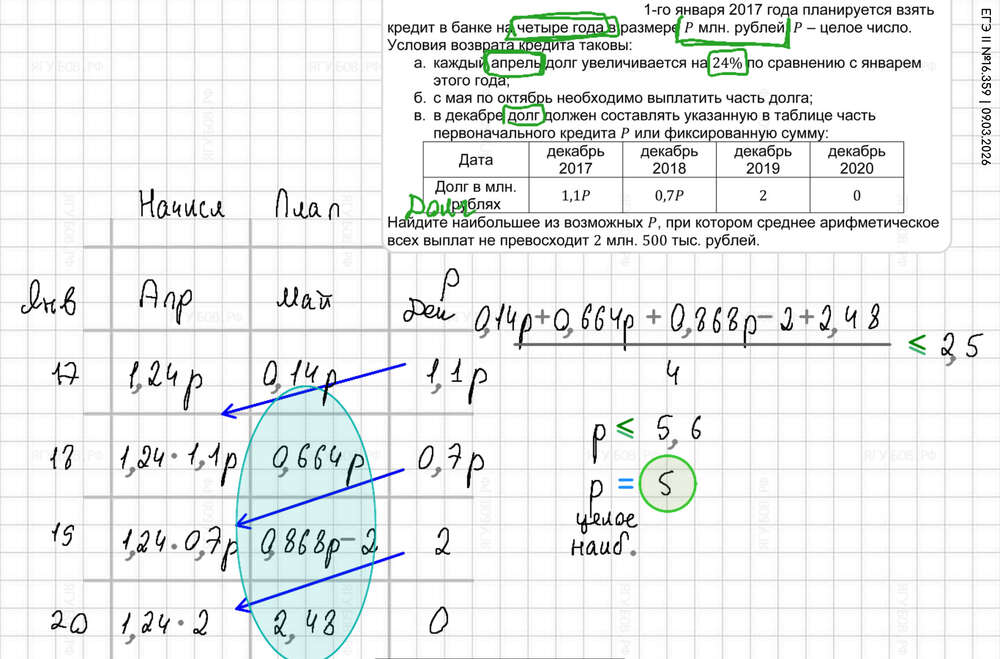 1-го января 2017 года планируется взять
кредит в банке на четыре года в размере P млн. рублей, P – целое число.
Условия возврата кредита таковы:
а. каждый апрель долг увеличивается на 24% по сравнению с январем
этого года;
б. с мая по октябрь необходимо выплатить часть долга;
в. в декабре долг должен составлять указанную в таблице часть
первоначального кредита P или фиксированную сумму:
Дата декабрь 2017 декабрь 2018 декабрь 2019 декабрь 2020
Долг в млн. рублях 1,1P 0,7P 2 0
Долг
Найдите наибольшее из возможных P, при котором среднее арифметическое
всех выплат не превосходит 2 млн. 500 тыс. рублей.
ЕГЭ II №16.359 | 09.03.2026
Начисл Плат
p
Янв Апр Май Дек
17 1,24p 0,14p 1,1p
18 1,24·1,1p 0,664p 0,7p
19 1,24·0,7p 0,868p-2 2
20 1,24·2 2,48 0
0,14p+0,664p+0,868p-2+2,48
4
≤ 2,5
p ≤ 5,6
p = 5
целое
наиб.